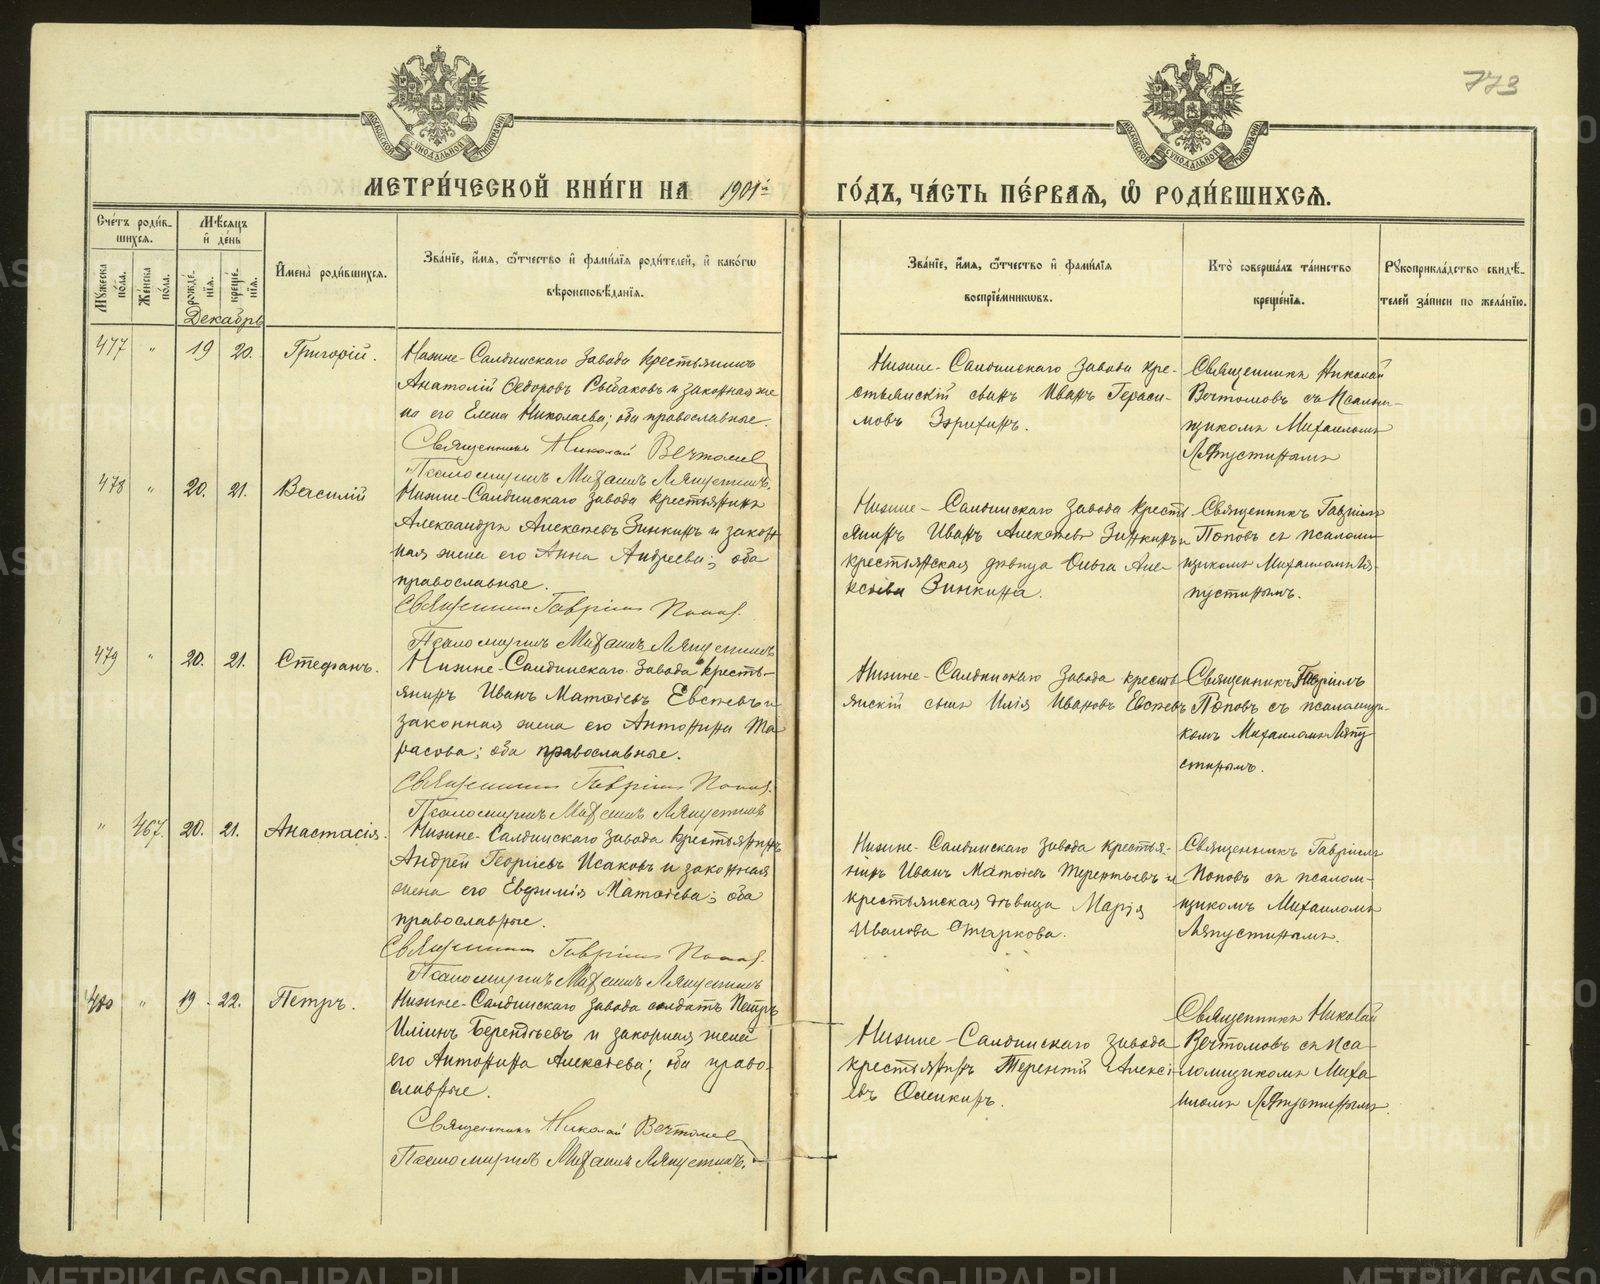 773
МЕТРИ́ЧЕСКОЙ КНИ́ГИ НА 1901й ГО́ДЪ, ЧА́СТЬ ПЕ́РВАЯ, Ѽ РОДИ́ВШИХСЯ.
МОСКОВСКОЙ СУНОДАЛЬНОЙ ТИПОГРАФІИ
МОСКОВСКОЙ СУНОДАЛЬНОЙ ТИПОГРАФІИ
Сче́тъ роди́в-
шихся.
Мѣ́сяцъ
и҆ де́нь
Мꙋ́жеска по́ла.
Же́нска по́ла.
рожде́нїя.
креще́нїя.
И҆мена̀ роди́вшихся.
Зва́нїе, и҆́мя, ѻ҆́тчество и҆ фами́лїя роди́телей, и҆ како́гѡ
вѣроисповѣ́данїя.
Зва́нїе, и҆́мя, ѻ҆́тчество и҆ фами́лїя
воспрїе́мникѡвъ.
Кто̀ соверша́лъ та́инство
креще́нїя.
Рꙋкоприкла́дство свидѣ́-
телей за́писи по жела́нїю.
Декабрь
477 " 19 20. Григорій.
Нижне-Салдинскаго завода крестьянинъ
Анатолій Ѳедоровъ Рыбаковъ и законная же
на его Елена Николаева; оба православные.
Священникъ Николай Вечтомов
Псаломщикъ Михаилъ Ляпустинъ.
Нижне-Салдинскаго завода кре-
стьянскій сынъ Иванъ Гераси-
мовъ
Священникъ Николай
Вечтомовъ съ псалом-
щикомъ Михаиломъ
Ляпустинымъ
478 " 20. 21. Василій
Нижне-Салдинскаго завода крестьянинъ
Александръ Алексѣевъ Зинкинъ и закон
ная жена его Анна Андреева; оба
православные.
Священникъ Гавріилъ Попов.
Псаломщикъ Михаилъ Ляпустинъ
Нижне-Салдинскаго завода кресть
янинъ Иванъ Алексѣевъ Зинкинъ и
крестьянская дѣвица Ольга Але-
ксѣева Зинкина.
Священникъ Гавріилъ
Поповъ съ псалом-
щикомъ Михаиломъ Ля-
пустинымъ.
479 " 20. 21. Стефанъ.
Нижне-Салдинскаго завода кресть-
янинъ Иванъ Матѳіевъ Евсѣевъ и
законная жена его Антонина Та
расова; оба православные.
Священникъ Гавріилъ Попов.
Псаломщикъ Михаилъ Ляпустинъ
Нижне-Салдинскаго завода кресть
янскій сынъ Илія Ивановъ Евсѣевъ
Священникъ Гавріилъ
Поповъ съ псаломщи-
комъ Михаиломъ Ляпу
стинымъ.
" 467. 20. 21. Анастасія.
Нижне-Салдинскаго завода крестьянинъ
Андрей Георгіевъ Исаковъ и законная
жена его Евфимія Матѳіева; оба
православные.
Священникъ Гавріилъ Попов.
Псаломщикъ Михаилъ Ляпустинъ
Нижне-Салдинскаго завода крестья-
нинъ Иванъ Матѳіевъ Терентьевъ и
крестьянская дѣвица Марія
Иванова Старкова.
Священникъ Гавріилъ
Поповъ съ псалом-
щикомъ Михаиломъ
Ляпустинымъ.
480 " 19 22. Петръ.
Нижне-Салдинскаго завода солдатъ Петръ
Иліинъ Берендѣевъ и законная жена
его Антонина Алексѣева; оба право-
славные.
Священникъ Николай Вечтомов
Псаломщикъ Михаилъ Ляпустинъ.
Нижне-Салдинскаго завода
крестьянинъ Терентій Алексѣ-
евъ
Священникъ Николай
Вечтомовъ съ пса-
ломщикомъ Миха
иломъ Ляпустинымъ.
METRIKI.GASO-URAL.RU